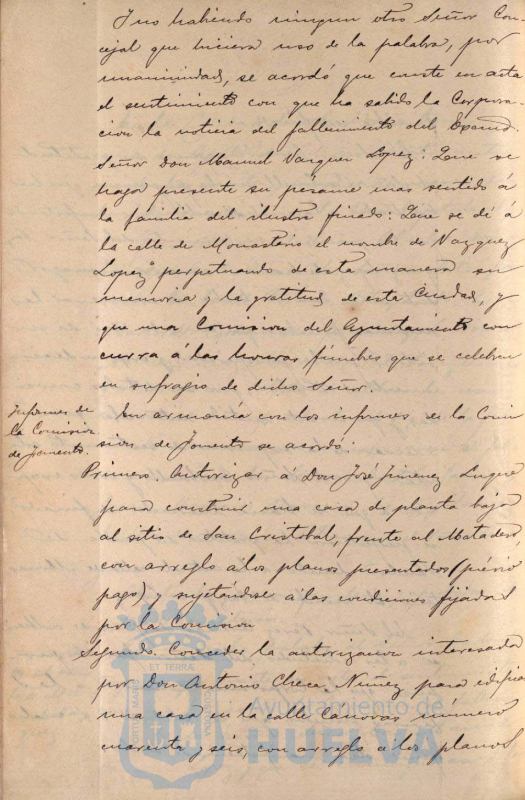 Y no habiendo ningun otro Señor Con
cejal que hiciera uso de la palabra, por
unanimidad, se acordó que conste en acta
el sentimiento con que ha sabido la Corpora-
cion la noticia del fallecimiento del Excmo.
Señor Don Manuel Vazquez Lopez: Que se
haga presente su pésame mas sentido á
la familia del ilustre finado: Que se dé á
la calle de Monasterio el nombre de "Vazquez
Lopez" perpetuando de esta manera su
memoria y la gratitud de esta Ciudad, y
que una Comision del Ayuntamiento con
curra á las honras fúnebres que se celebren
en sufragio de dicho Señor.
Informes de
la Comision
de Fomento.
En armonía con los informes de la Comi
sion de Fomento se acordó:
Primero. Autorizar á Don José Jimenez Luque
para construir una casa de planta baja
al sitio de San Cristobal, frente al Matadero,
con arreglo á los planos presentados (prévio
pago) y sujetándose á las condiciones fijadas
por la Comision
Segundo. Conceder la autorizacion interesada
por Don Antonio Checa Nuñez para edificar
una casa en la calle Cánovas número
cuarenta y seis, con arreglo á los planos
Ayuntamiento de
HUELVA